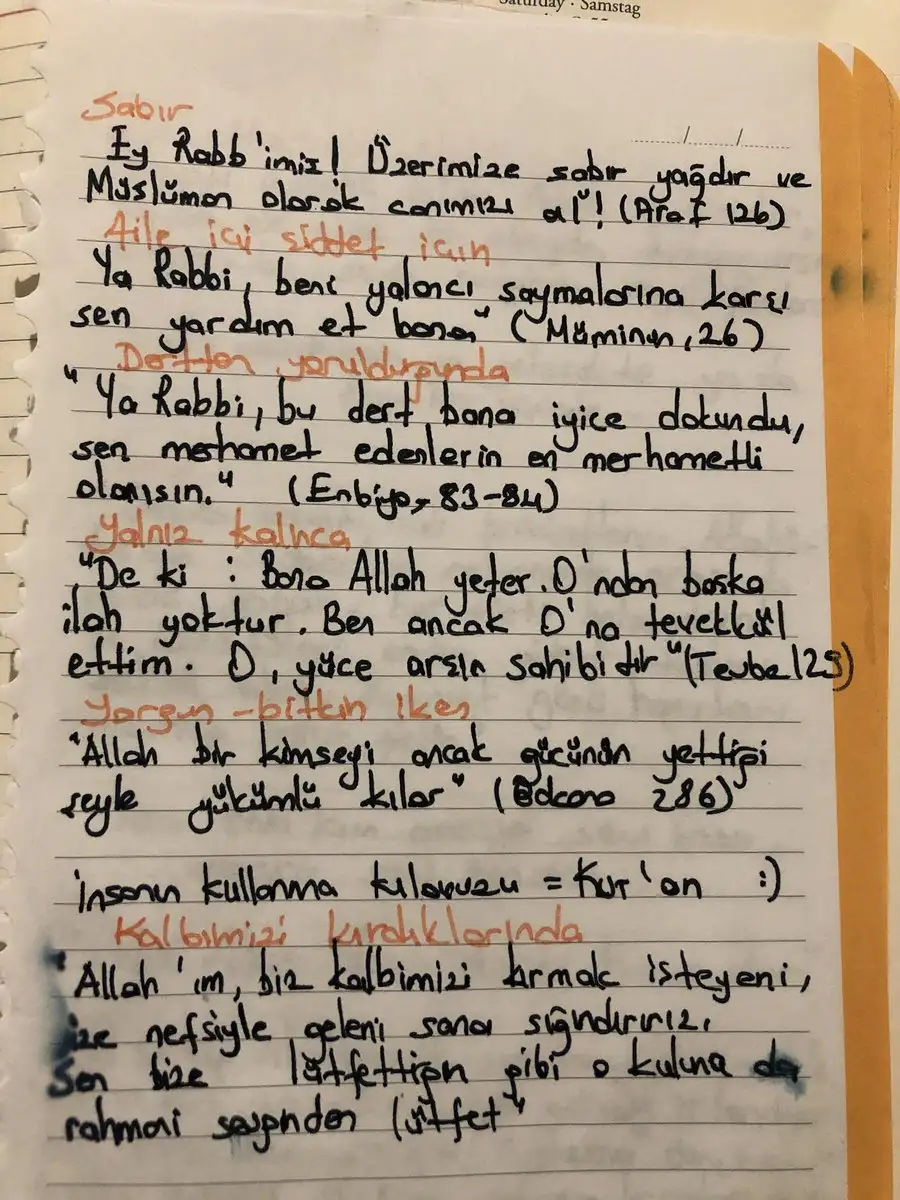 Saturday · Samstag
Sabır
Ey Rabb'imiz! Üzerimize sabır yağdır ve
Müslüman olarak canımızı al"! (Araf 126)
Aile içi şiddet için
Ya Rabbi, beni yalancı saymalarına karşı
sen yardım et bana" (Müminun, 26)
Dertten yorulduğunda
"Ya Rabbi, bu dert bana iyice dokundu,
sen merhamet edenlerin en merhametli
olanısın." (Enbiya, 83-84)
Yalnız kalınca
"De ki : Bana Allah yeter. O'ndan başka
ilah yoktur. Ben ancak O'na tevekkül
ettim. O, yüce arşın sahibidir" (Tevbe 129)
Yorgun-bitkin iken
"Allah bir kimseyi ancak gücünün yettiği
şeyle yükümlü kılar" (286)
İnsanın kullanma kılavuzu = Kur'an :)
Kalbimizi kırdıklarında
"Allah'ım, biz kalbimizi kırmak isteyeni,
ize nefsiyle geleni sana sığındırırız.
Sen bize lütfettiğin gibi o kuluna da
rahmani sevginden lütfet"